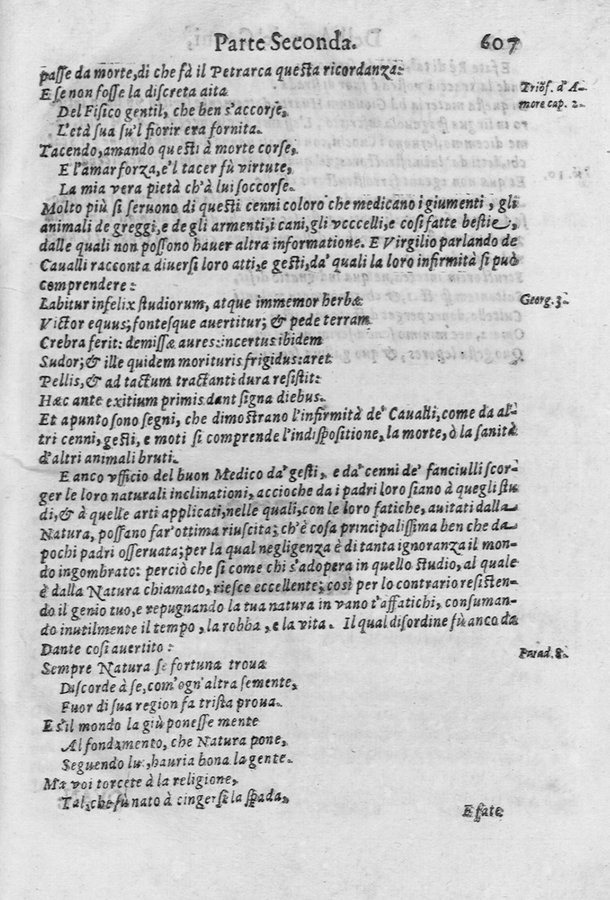 Parte Seconda. 607
passe da morte, di che fà il Petrarca questa ricordanza:
E se non fosse la discreta aita
Triōf. d'A-
Del Fisico gentil, che ben s'accorse,
more cap. 2.
L'età sua su'l fiorir era fornita.
Tacendo, amando questi à morte corse,
E l'amar forza, e'l tacer fù virtute,
La mia vera pietà ch'à lui soccorse.
Molto più si seruono di questi cenni coloro che medicano i giumenti, gli
animali de greggi, e de gli armenti, i cani, gli vcccelli, e cosi fatte bestie,
dalle quali non possono hauer altra informatione. E Virgilio parlando de
Caualli racconta diuersi loro atti, e gesti, da' quali la loro infirmità si può
comprendere:
Labitur infelix studiorum, atque immemor herbæ
Georg. 3.
Victor equus; fontesque auertitur; & pede terram
Crebra ferit: demissæ aures: incertus ibidem
Sudor; & ille quidem morituris frigidus: aret
Pellis, & ad tactum tractanti dura resistit:
Hæc ante exitium primis dant signa diebus.
Et apunto sono segni, che dimostrano l'infirmità de' Caualli, come da al-
tri cenni, gesti, e moti si comprende l'indispositione, la morte, ò la sanità
d'altri animali bruti.
E anco vfficio del buon Medico da' gesti, e da' cenni de' fanciulli scor-
ger le loro naturali inclinationi, accioche da i padri loro siano à quegli stu
di, & à quelle arti applicati, nelle quali, con le loro fatiche, auitati dalla
Natura, possano far'ottima riuscita; ch'è cosa principalissima ben che da
pochi padri osseruata; per la qual negligenza è di tanta ignoranza il mon-
do ingombrato: perciò che si come chi s'adopera in quello studio, al quale
è dalla Natura chiamato, riesce eccellente; così per lo contrario resisten-
do il genio tuo, e repugnando la tua natura in vano t'affatichi, consuman-
do inutilmente il tempo, la robba, e la vita. Il qual disordine fù anco da
Dante cosi auertito:
Parad. 8.
Sempre Natura se fortuna troua
Discorde à se, com'ogn'altra semente,
Fuor di sua region fa trista proua.
E s'il mondo la giù ponesse mente
Al fondamento, che Natura pone,
Seguendo lui, hauria bona la gente.
Ma voi torcete à la religione,
Tal, che fù nato à cingersi la spada,
E fate